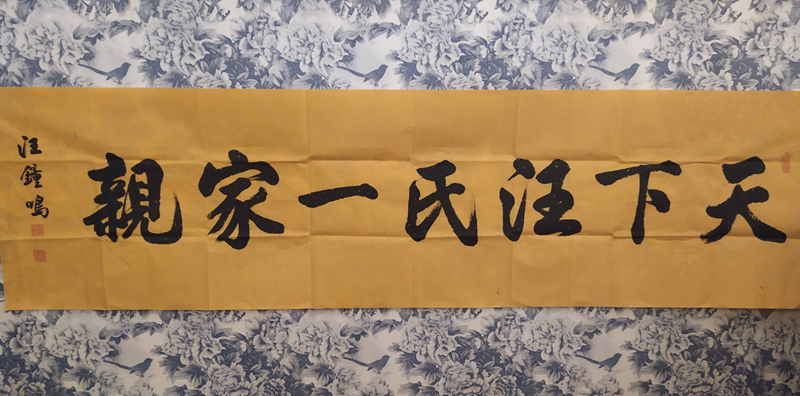 天下汪氏一家親
汪鐘鳴